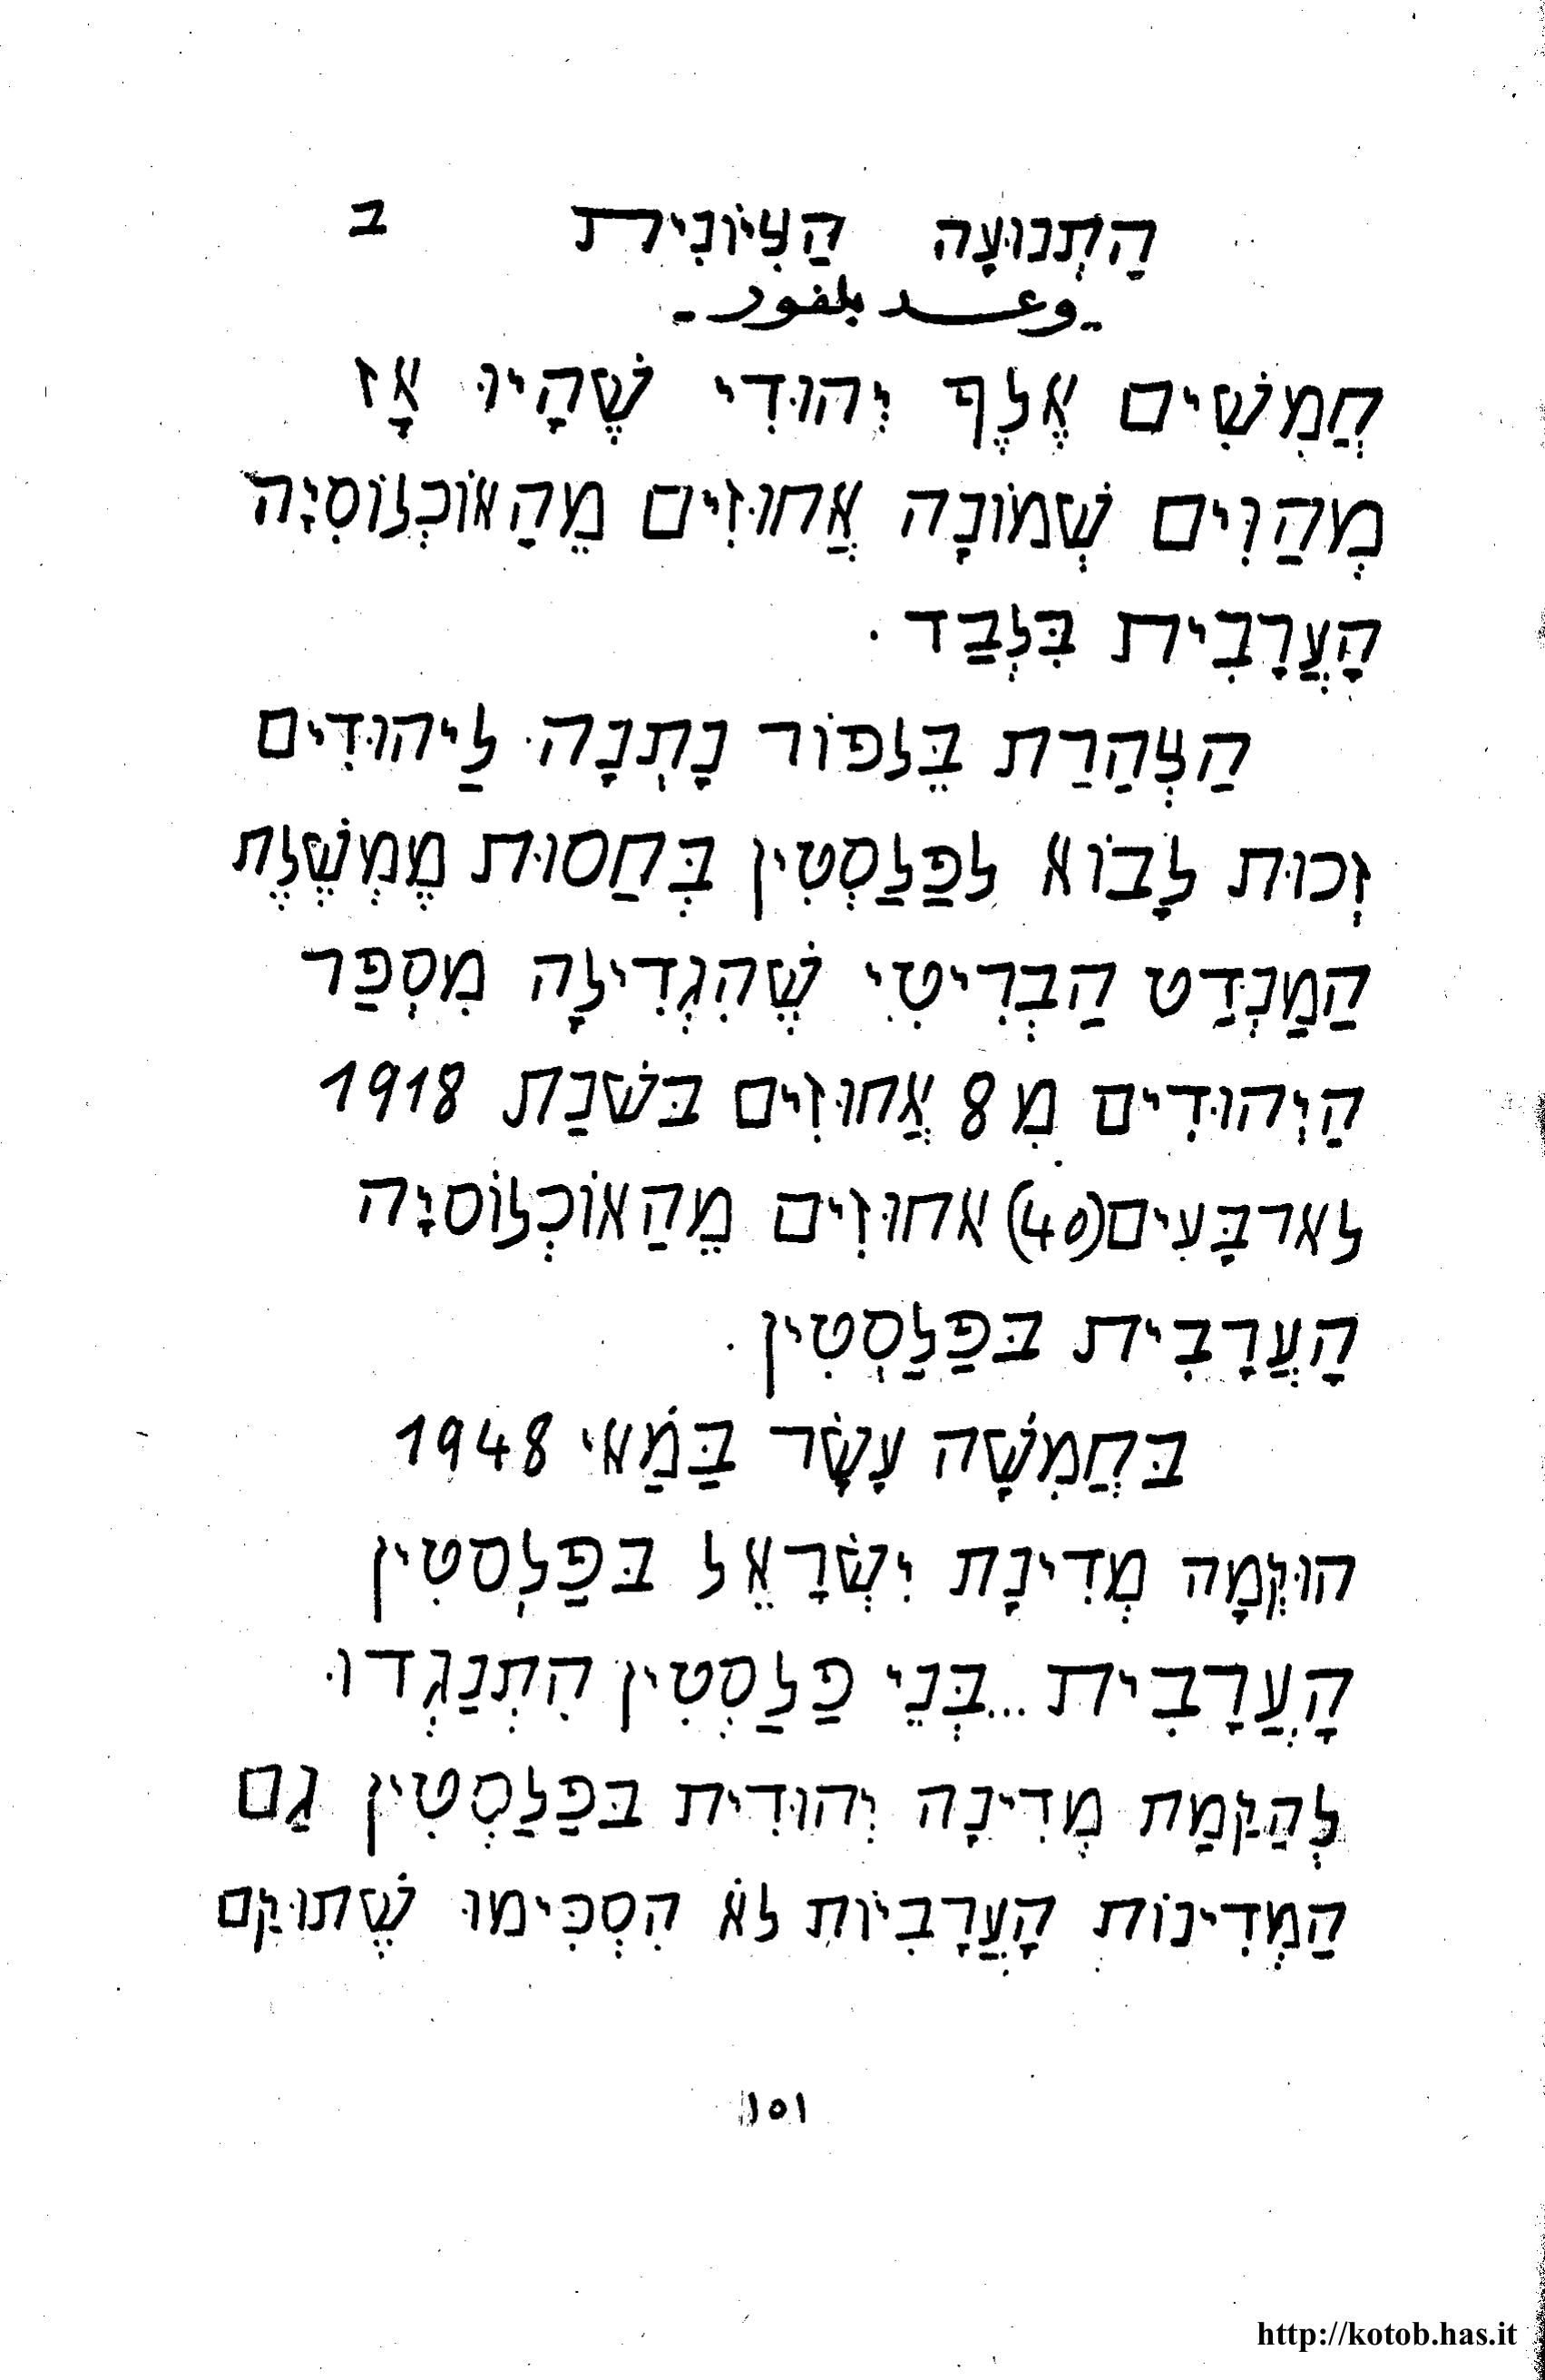 הַתְנוּעָה הַצִיוֹנִית ב
ـ وعـــد بلفور ـ
חֲמִשִׁים אֶלֶף יְהוּדִי שֶׁהָיוּ אָז
מְהַוִּים שְׁמוֹנָה אֲחוּזִים מֵהַאוֹכְלוֹסִיָה
הָעֲרָבִית בִּלְבַד .
הַצְהַרַת בֵּלפוֹר נָתְנָה לַיהוּדִים
זְכוּת לָבוֹא לפַלַסְטִין בְּחַסוּת מֶמְשֶׁלֶת
הַמַנְדַט הַבְרִיטִי שֶׁהִגְדִילָה מִסְפַר
הַיְהוּדִים מִ 8 אֲחוּזִים בּשׁנַת 1918
לארבָּעִים (40) אחוּזִים מֵהַאוֹכְלוֹסיָה
הָעֲרָבִית בּפַלַסְטִין .
בּחֲמִשָׁה עָשָׂר בַּמַאי 1948
הוּקְמָה מְדִינָת יִשְׂרָאֵל בּפַלְסטִין
הָעֲרָבִית ... בְּנֵי פַלַסְטִין הִתְנַגְדוּ
לְהַקַמַת מְדִינָה יְהוּדִית בּפַלַסְטִין גַם
הַמְדִינוֹת הָעֲרָבִיוֹת לֹא הִסְכִּימוּ שֶׁתוּקַם
١٥١
http://kotob.has.it